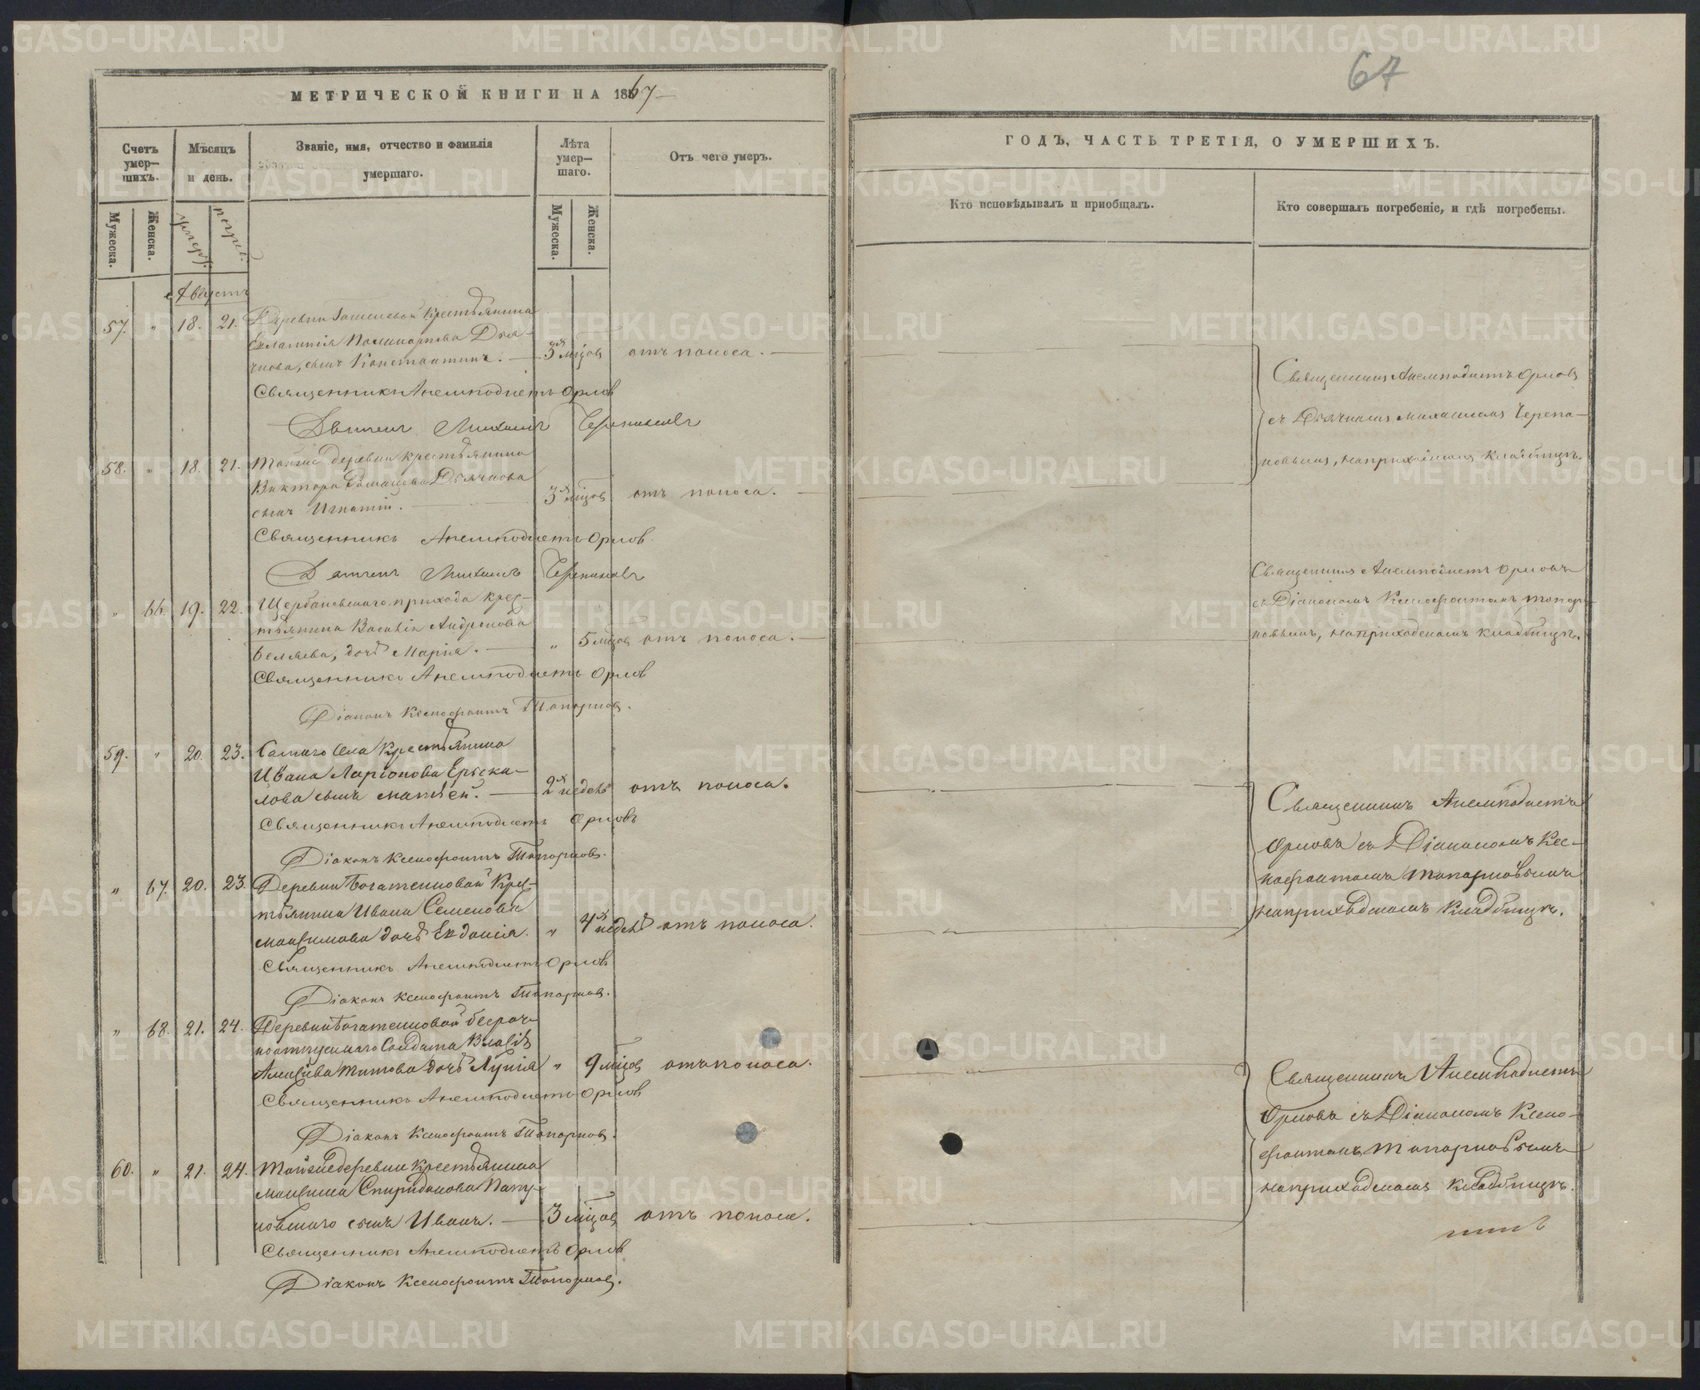 МЕТРИЧЕСКОЙ КНИГИ НА 1867
Счетъ умер-шихъ.
Мѣсяцъ и день.
Званіе, имя, отчество и фамилія умершаго.
Лѣта умер-шаго.
Отъ чего умеръ.
Мужеска.
Женска.
умерт.
погреб.
Мужеска.
Женска.
Августъ
57. " 18. 21. Деревни крестьянина
сынъ Константинъ. 3 мѣсов отъ поноса.
Священникъ Анемподистъ Орловъ
Дьячекъ Михаилъ Черепановъ
58. " 18. 21. Тойже деревни крестьянина
Виктора Дьячкова
сынъ Игнатій. 3 мѣсов отъ поноса.
Священникъ Анемподистъ Орловъ
Дьячекъ Михаилъ Черепановъ
" 66. 19. 22. Щербаковскаго прихода крес-
тьянина Василія Андреева
Беляева, дочь Марія. " 5 мѣсов отъ поноса.
Священникъ Анемподистъ Орловъ
Діаконъ Ксенофонтъ Топорковъ.
59. " 20. 23. Самаго села крестьянина
Ивана Ларіонова
сынъ Матвей. 2х недель отъ поноса.
Священникъ Анемподистъ Орловъ
Діаконъ Ксенофонтъ Топорковъ.
" 67. 20. 23. Деревни Богатенковой крес-
тьянина Ивана Семенова
Максимова дочь Евдокія. " 4х недель отъ поноса.
Священникъ Анемподистъ Орловъ
Діаконъ Ксенофонтъ Топорковъ.
" 68. 21. 24. Деревни Богатенковой безсроч-
ноотпускнаго солдата
Алексѣева Титова дочь Лукія " 9 мѣсов отъ поноса.
Священникъ Анемподистъ Орловъ
Діаконъ Ксенофонтъ Топорковъ.
60. " 21. 24. Тойже деревни крестьянина
Максима Спиридонова
сынъ Иванъ. 3 мѣсов отъ поноса.
Священникъ Анемподистъ Орловъ
Діаконъ Ксенофонтъ Топорковъ.
67
ГОДЪ, ЧАСТЬ ТРЕТІЯ, О УМЕРШИХЪ.
Кто исповѣдывалъ и пріобщалъ.
Кто совершалъ погребеніе, и гдѣ погребены.
Священникъ Анемподистъ Орловъ
съ Дьячкомъ Михаиломъ Черепа-
новымъ, на приходскомъ кладбищѣ.
Священникъ Анемподистъ Орловъ
съ Діакономъ Ксенофонтомъ Топор-
ковымъ, на приходскомъ кладбищѣ.
Священникъ Анемподистъ
Орловъ съ Діакономъ Ксе-
нофонтомъ Топорковымъ
на приходскомъ кладбищѣ.
Священникъ Анемподистъ
Орловъ съ Діакономъ Ксено-
фонтомъ Топорковымъ
на приходскомъ кладбищѣ.
METRIKI.GASO-URAL.RU